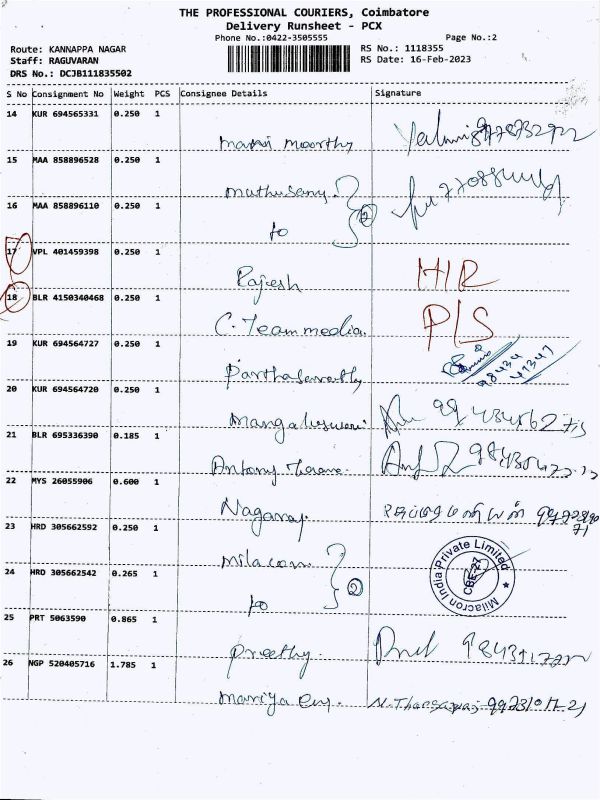 THE PROFESSIONAL COURIERS, Coimbatore
Delivery Runsheet - PCX
Phone No.:0422-3505555
Page No.:2
Route: KANNAPPA NAGAR
RS No.: 1118355
Staff: RAGUVARAN
RS Date: 16-Feb-2023
DRS No.: DCJB111835502
S No Consignment No Weight PCS Consignee Details Signature
14 KUR 694565331 0.250 1
15 MAA 858896528 0.250 1
muthusamy
16 MAA 858896110 0.250 1
to
2
17 VPL 401459398 0.250 1
Rajesh H/R
18 BLR 4150340468 0.250 1
C. Team media. P/S
19 KUR 694564727 0.250 1
98434
41347
Parthasarathy
20 KUR 694564720 0.250 1
21 BLR 695336390 0.185 1
Antony
22 MYS 26055906 0.600 1
Nagaraj
23 HRD 305662592 0.250 1
Milacron
Milacron India Private Limited
CBE-27
24 HRD 305662542 0.265 1
to
2
25 PRT 5063590 0.865 1
Preethy.
26 NGP 520405716 1.785 1
Mariya